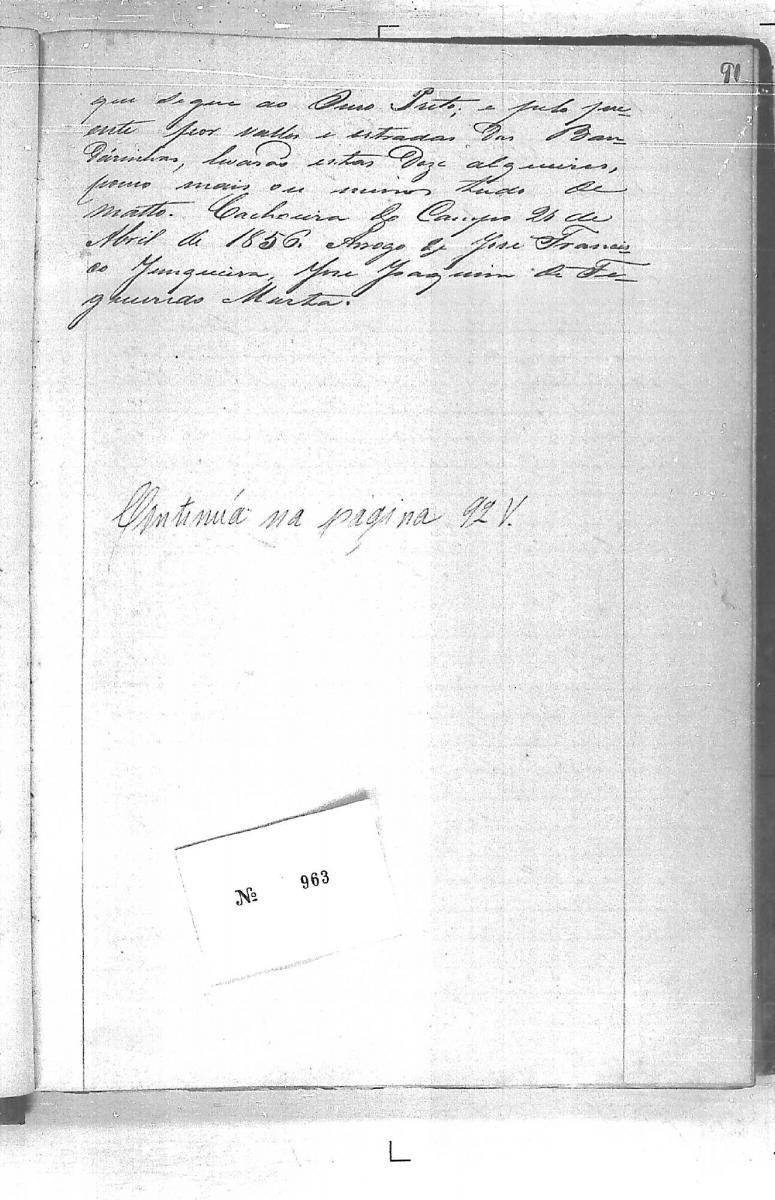 91
que segue ao Ouro Preto; e pelo pne-
ente por vallos e estradas das Ban-
deirinhas, levarão estas doze alqueires,
pouco mais ou menos tudo de
matto. Cachoeira do Campo 24 de
Abril de 1856. Arrogo de José Francis-
co Junqueira, José Joaquim de Fi-
gueiredo Murta.
Continúa na página 92 V.
Nº 963